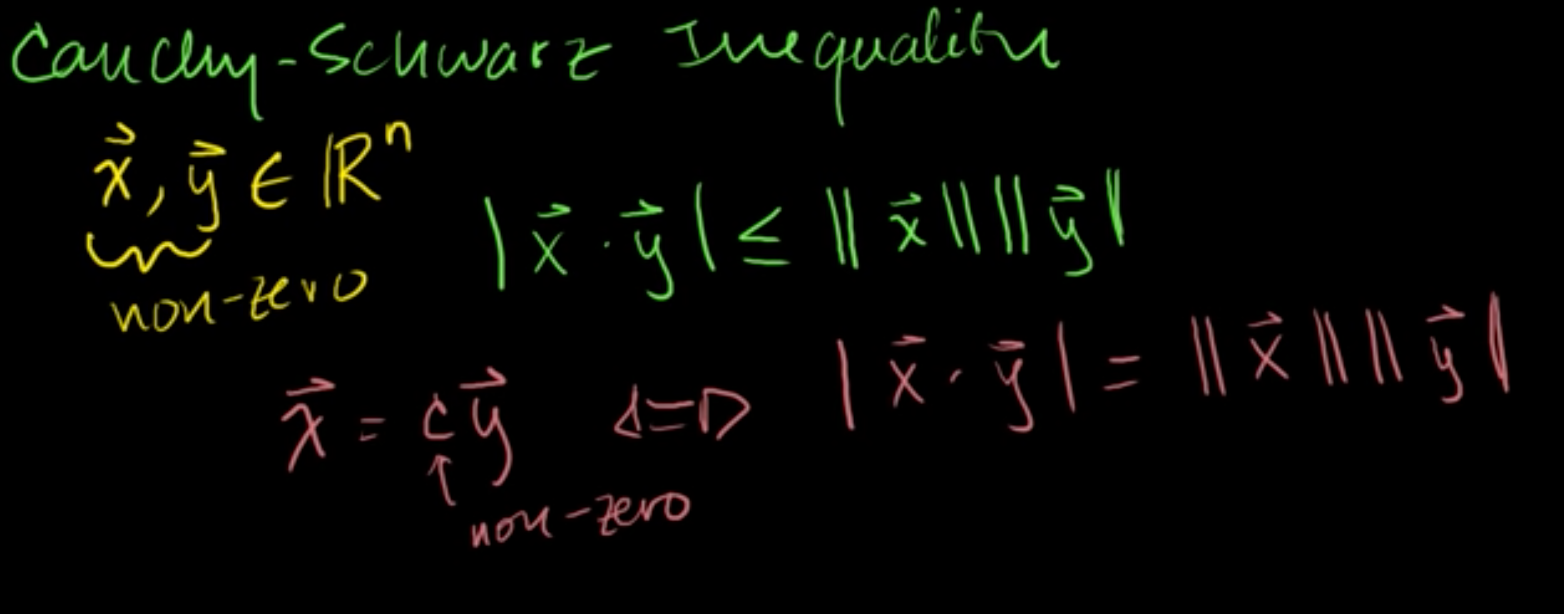 Cauchy-Schwarz Inequality
x⃗, y⃗ ∈ ℝⁿ
non-zero
|x⃗ · y⃗| ≤ ‖x⃗‖ ‖y⃗‖
x⃗ = cy⃗ ⇔ |x⃗ · y⃗| = ‖x⃗‖ ‖y⃗‖
↑
non-zero